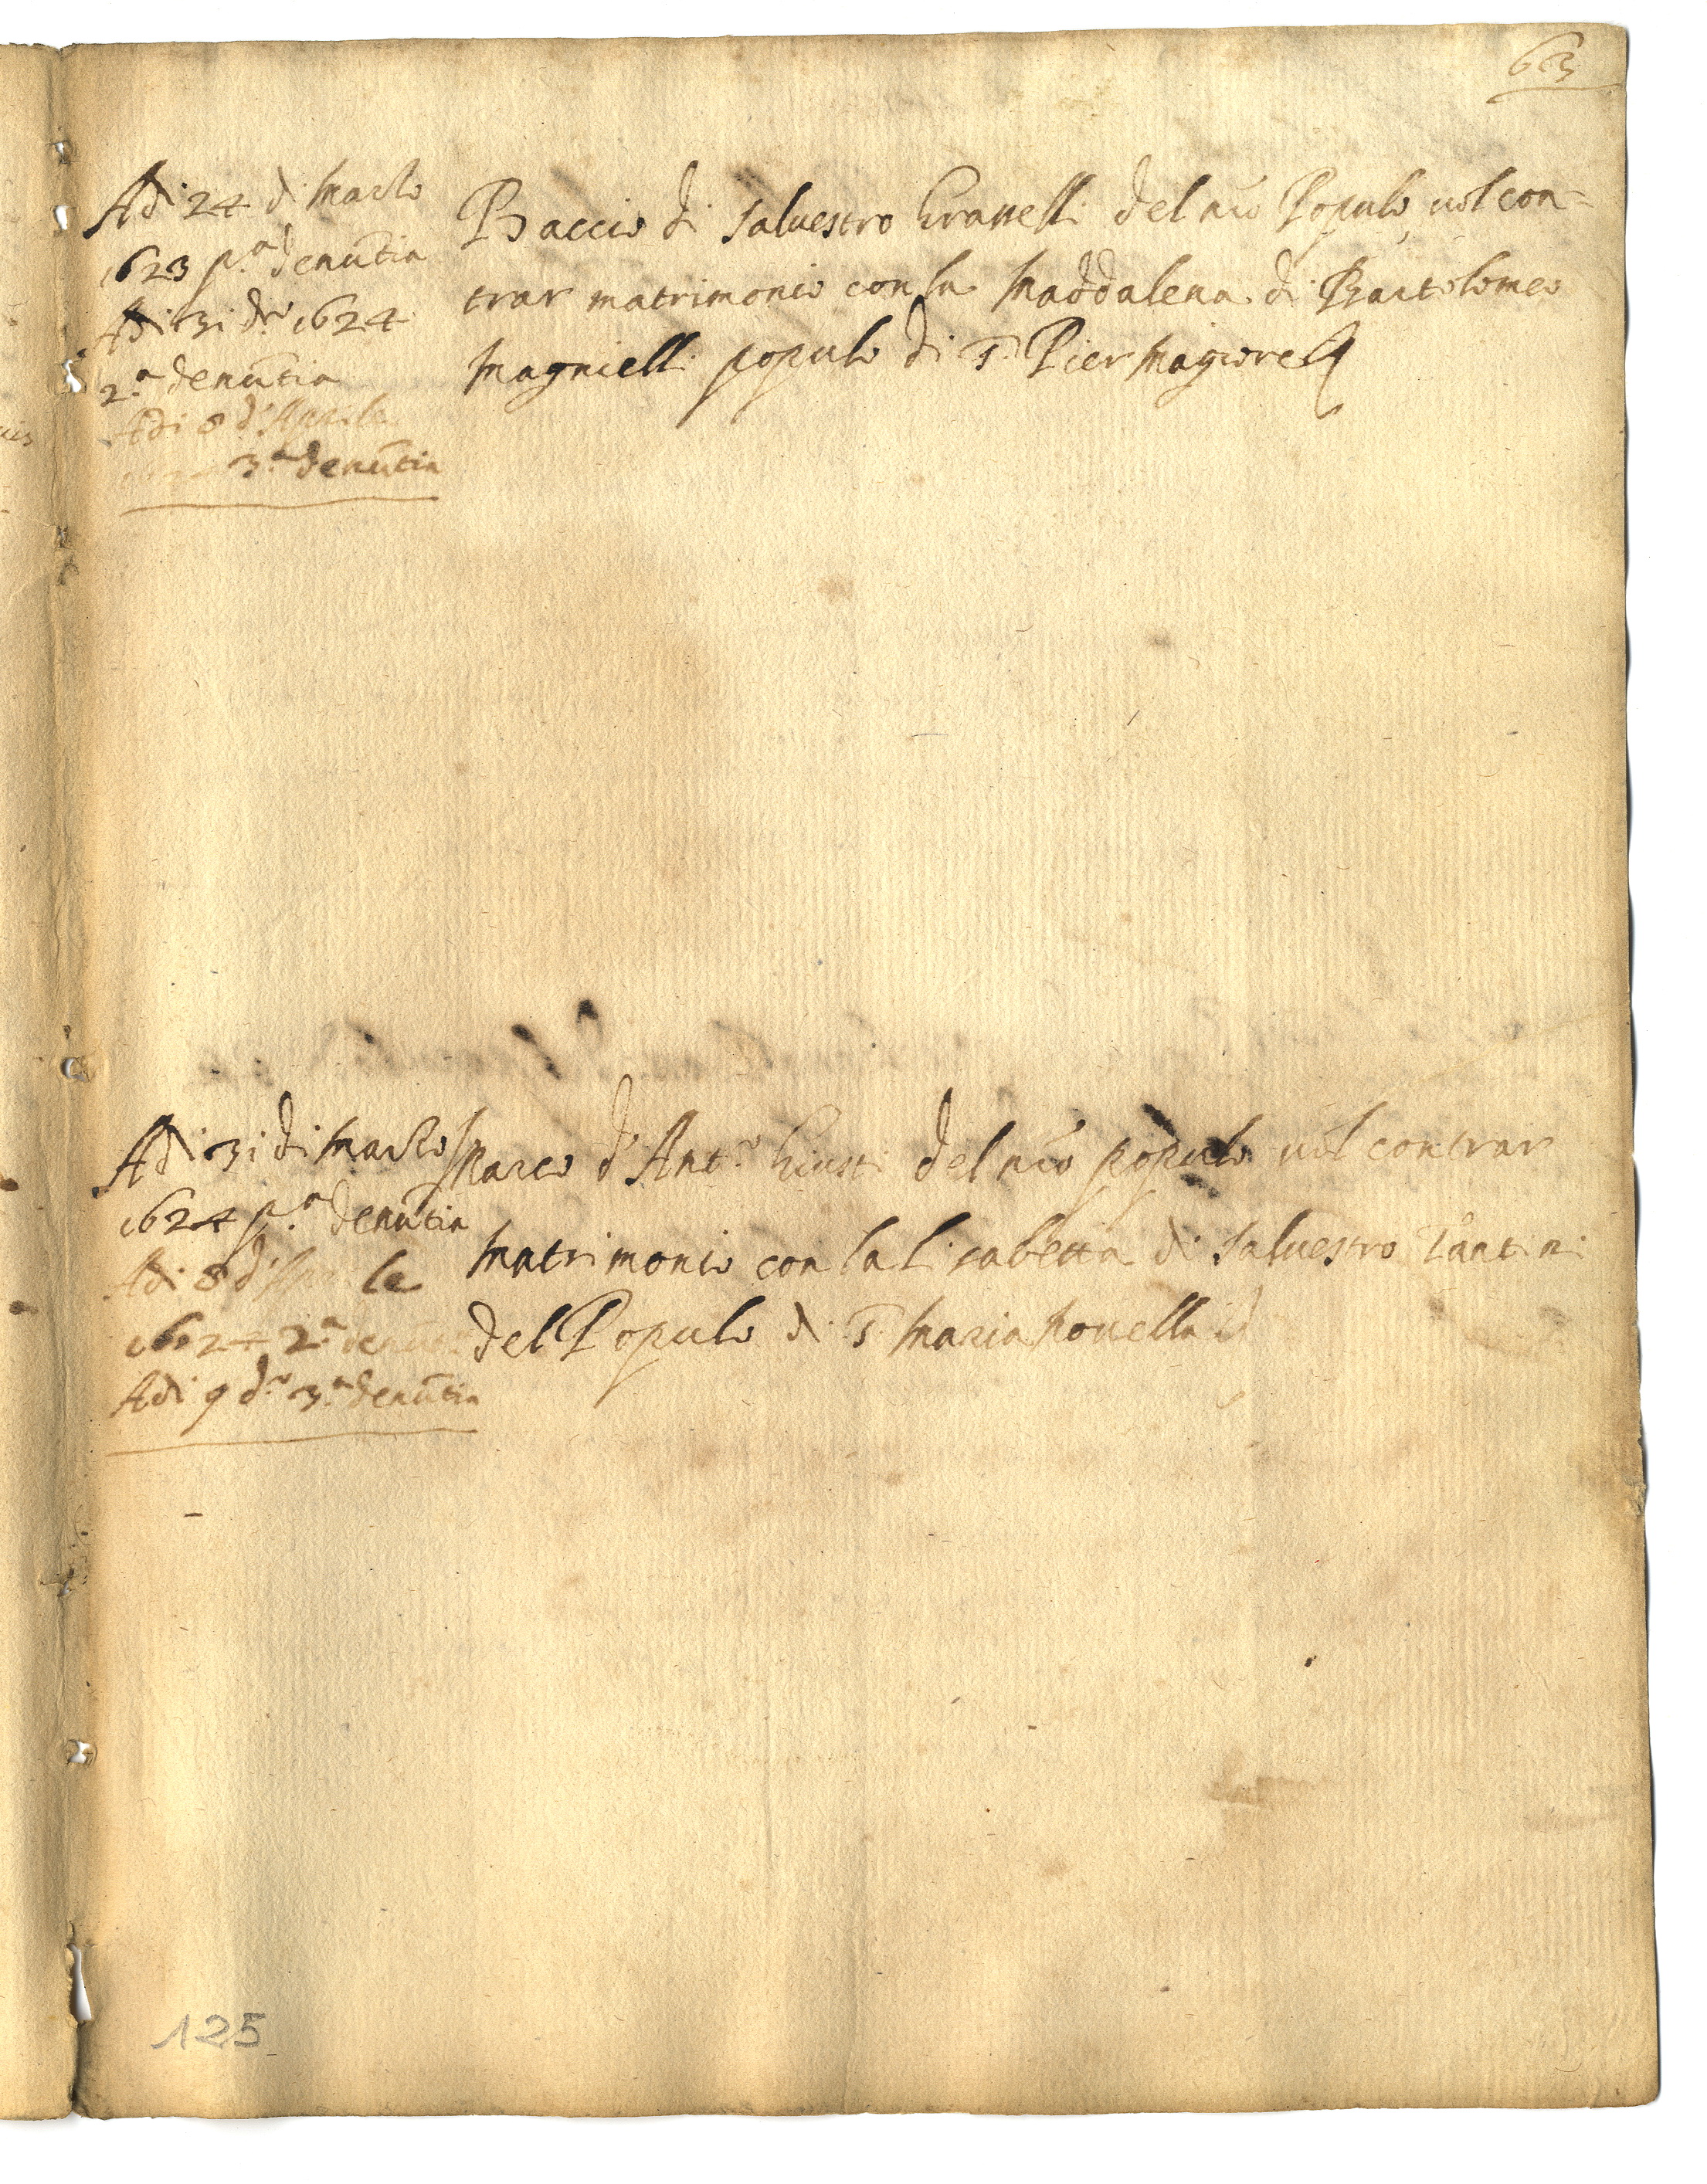 63
Adi 24 di Marzo
1623 p.ª denũtia
Adi 31 d.º 1624
2.ª denũtia
Adi 8 d'Aprile
3.ª denũtia
Baccio di Saluestro Grauelli del nrõ Populo uol con=
trar matrimonio con la Maddalena di Bartolomeo
Magnielli populo di S. Pier Magiore
Adi 31 di Marzo
1624 p.ª denũtia
Adi 8 d'Aprile
1624 2.ª denũtia
Adi 9 d.º 3.ª denũtia
Marco d'Ant.º Giusti del nrõ populo uol contrar
Matrimonio con la Lisabetta di Saluestro
del Populo di S. Maria Nouella
125